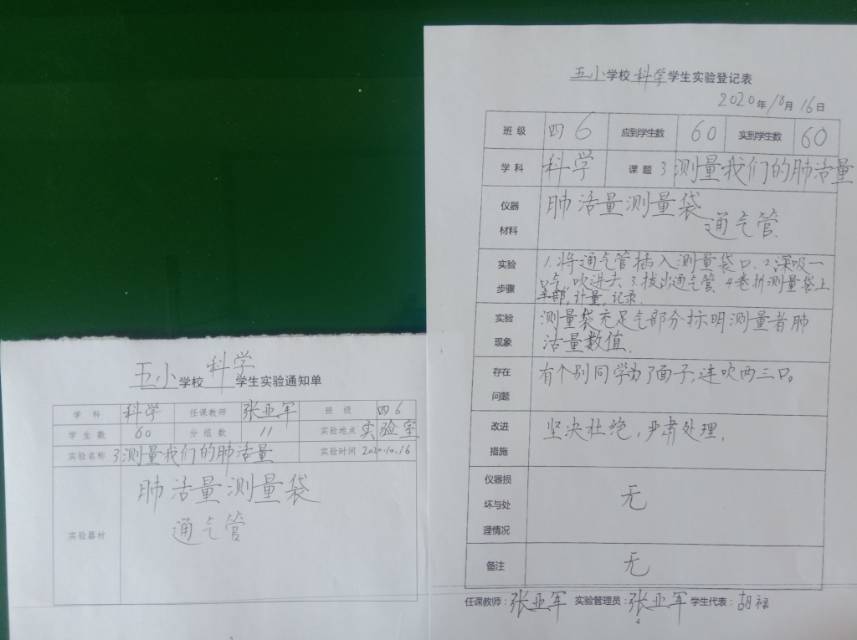 五小学校科学学生实验通知单
学科 科学 任课教师 张亚军 班级 四6
学生数 60 分组数 11 实验地点 实验室
实验名称 3测量我们的肺活量 实验时间 2020.10.16
实验器材 肺活量测量袋
通气管
五小学校科学学生实验登记表
2020年10月16日
班级 四6 应到学生数 60 实到学生数 60
学科 科学 课题 3测量我们的肺活量
仪器材料 肺活量测量袋
通气管
实验步骤 1.将通气管插入测量袋口.2.深吸一
口气,吹进去.3.拔出通气管.4.卷折测量袋上
半部,计量,记录.
实验现象 测量袋充足气部分标明测量者肺
活量数值.
存在问题 有个别同学为了面子,连吹两三口。
改进措施 坚决杜绝,严肃处理.
仪器损坏与处理情况 无
备注 无
任课教师:张亚军 实验管理员:张亚军 学生代表: